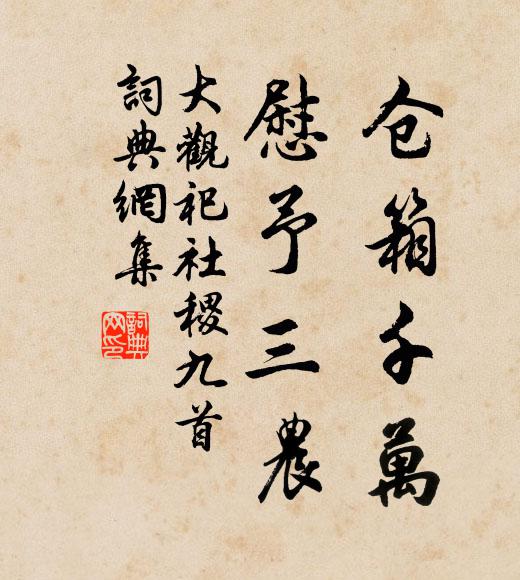 仓箱千萬
慰予三農
大觀祀社稷九首
詞典網集
詞典
网印